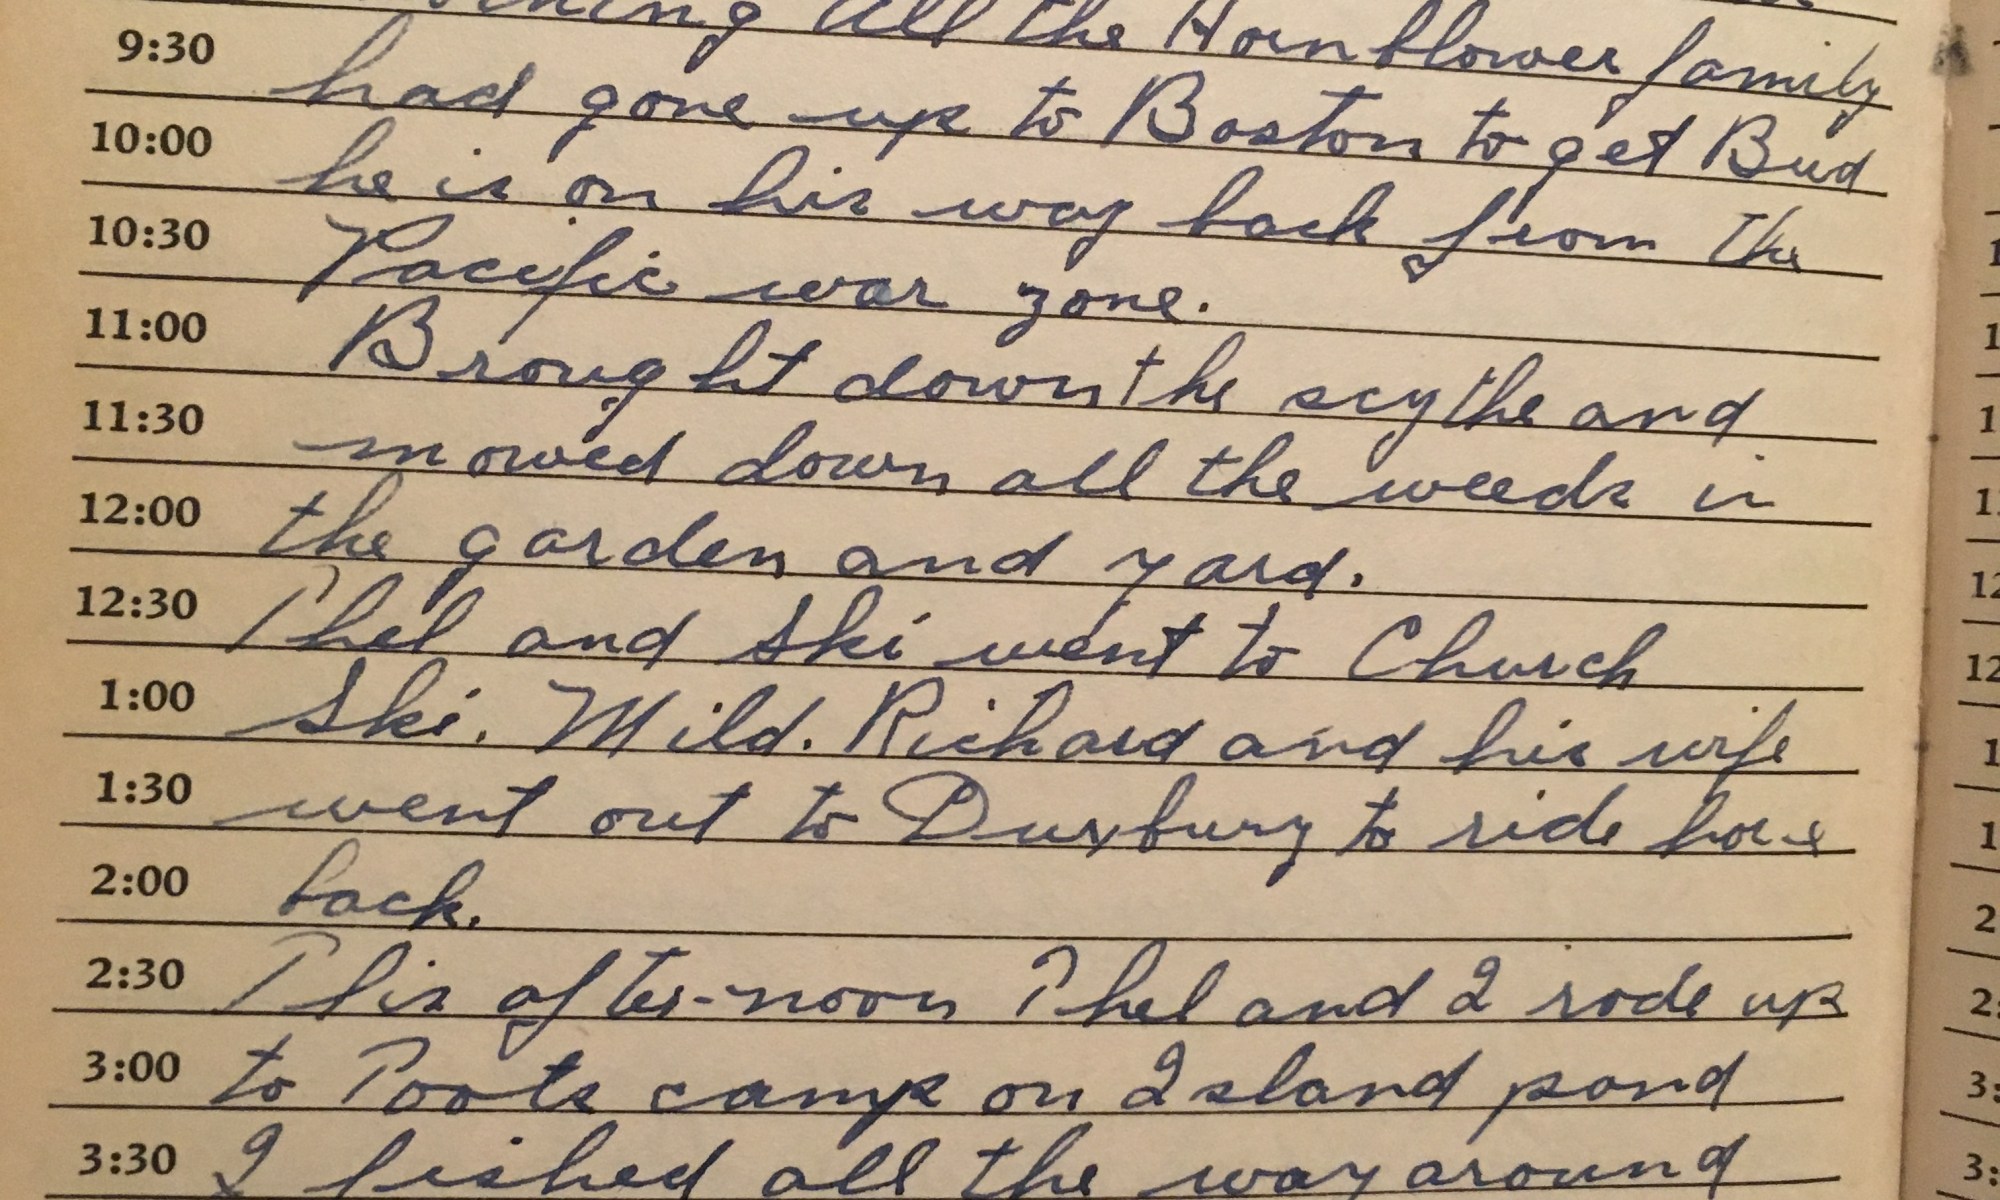 All the Hornblower family
9:30 had gone up to Boston to get Bud
10:00 he is on his way back from the
10:30 Pacific war zone.
11:00 Brought down the scythe and
11:30 mowed down all the weeds in
12:00 the garden and yard.
12:30 Thel and Ski went to Church
1:00 Ski. Mild. Richard and his wife
1:30 went out to Duxbury to ride horse
2:00 back.
2:30 This after-noon Thel and I rode up
3:00 to Poots camp on Island pond
3:30 I fished all the way around